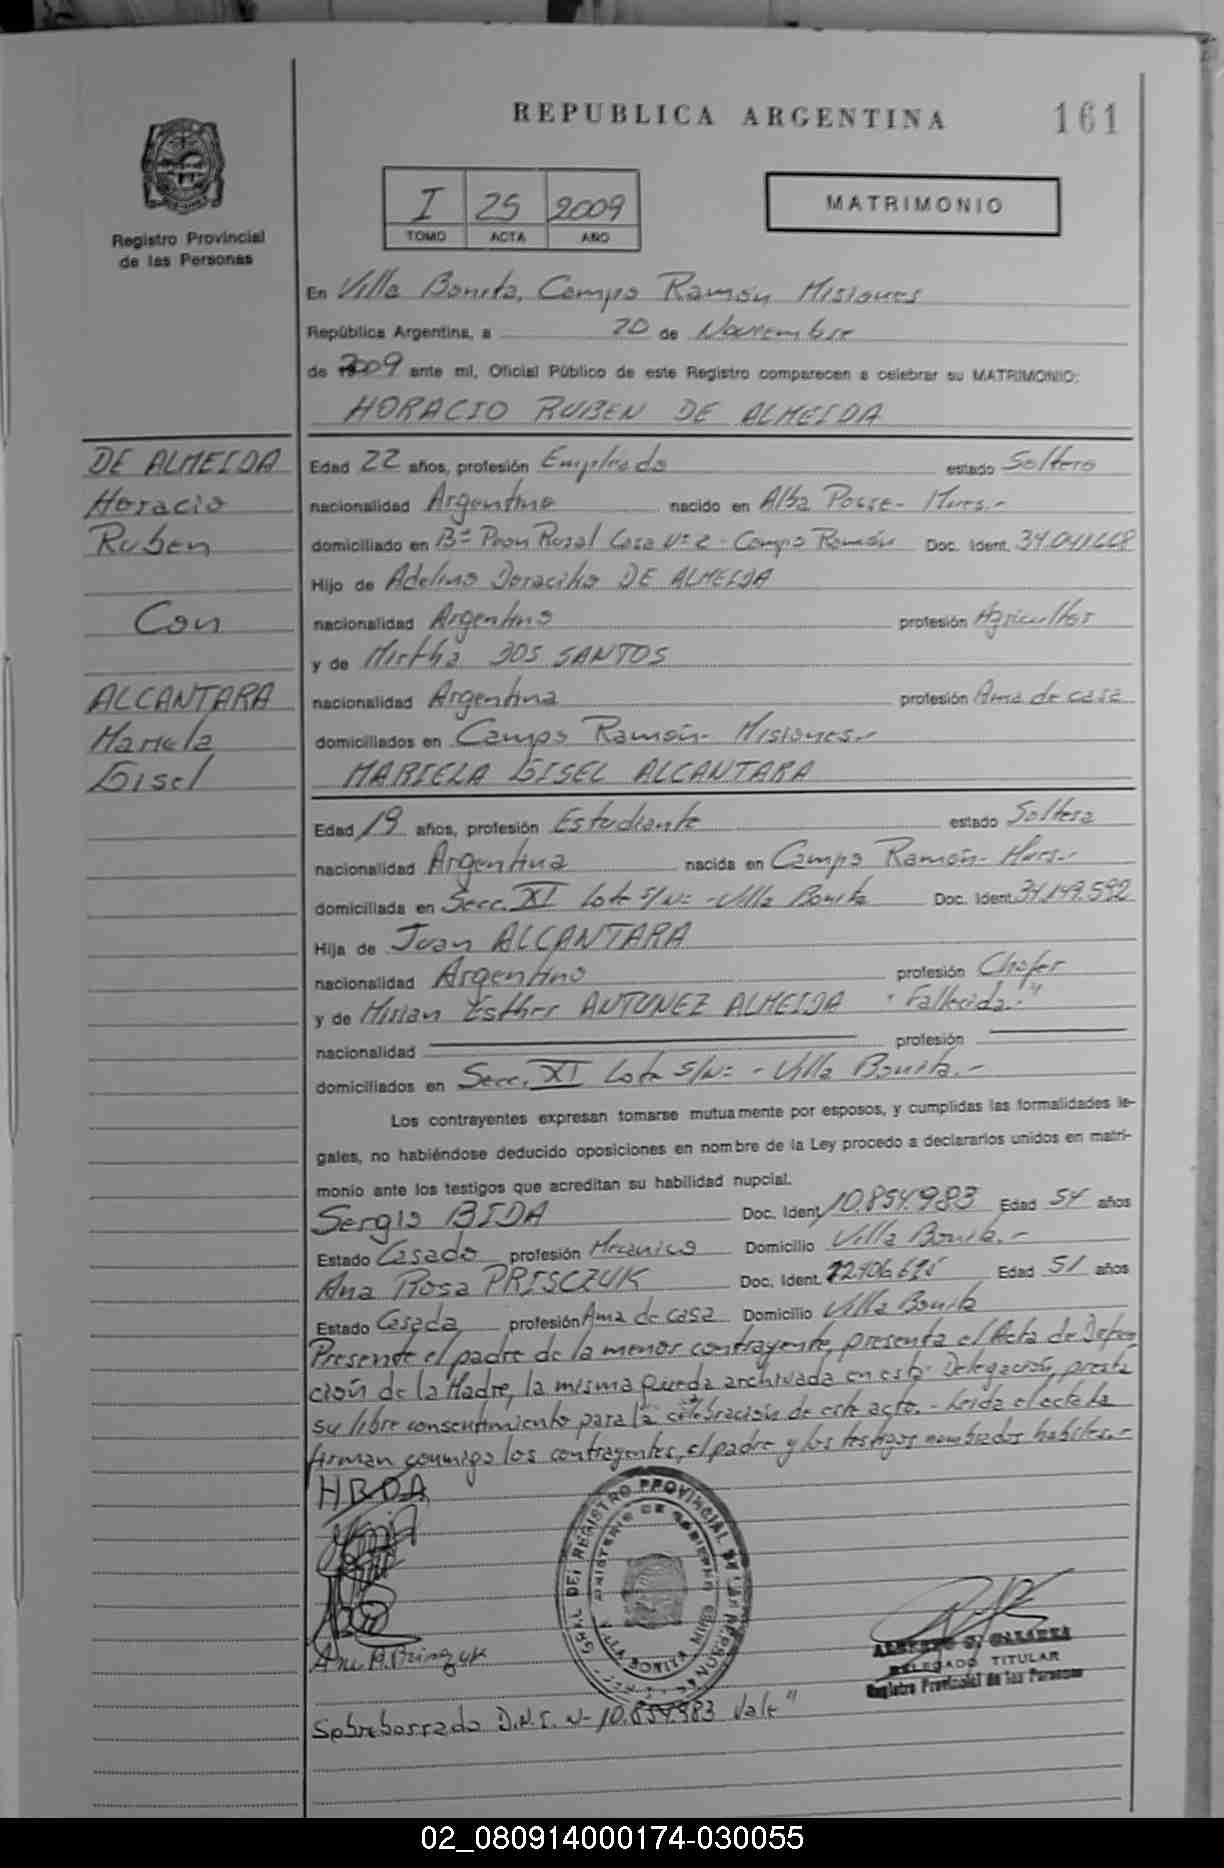 REPUBLICA ARGENTINA
161
Registro Provincial
de las Personas
I 25 2009
TOMO ACTA AÑO
MATRIMONIO
En Villa Bonita, Campo Ramón Misiones
República Argentina, a 20 de Noviembre
de 2009 ante mí, Oficial Público de este Registro comparecen a celebrar su MATRIMONIO:
HORACIO RUBEN DE ALMEIDA
DE ALMEIDA
Horacio
Ruben
Con
ALCANTARA
Mariela
Gisel
Edad 22 años, profesión Empleado estado Soltero
nacionalidad Argentino nacido en Alba Posse- Mnes.-
domiciliado en Bº Peon Rural Casa Nº 2 - Campo Ramón Doc. Ident. 34.041.668
Hijo de Adelino DE ALMEIDA
nacionalidad Argentino profesión Agricultor
y de Mirtha DOS SANTOS
nacionalidad Argentina profesión Ama de casa
domiciliados en Campo Ramón- Misiones.-
MARIELA GISEL ALCANTARA
Edad 19 años, profesión Estudiante estado Soltera
nacionalidad Argentina nacida en Campo Ramón- Mnes.-
domiciliada en Secc. XI Lote S/Nº -Villa Bonita Doc. Ident. 34.149.592
Hija de Juan ALCANTARA
nacionalidad Argentino profesión Chofer
y de Mirian Esther ANTUNEZ ALMEIDA "Fallecida."
nacionalidad profesión
domiciliados en Secc. XI Lote S/Nº - Villa Bonita.-
Los contrayentes expresan tomarse mutuamente por esposos, y cumplidas las formalidades le-
gales, no habiéndose deducido oposiciones en nombre de la Ley procedo a declararlos unidos en matri-
monio ante los testigos que acreditan su habilidad nupcial.
Sergio BIDA Doc. Ident. 10.854.983 Edad 54 años
Estado Casado profesión Mecanico Domicilio Villa Bonita.-
Ana Rosa PRISCZUK Doc. Ident. 12.406.615 Edad 51 años
Estado Casada profesión Ama de casa Domicilio Villa Bonita
Presente el padre de la menor contrayente, presenta el Acta de Defun
ción de la Madre, la misma queda archivada en esta Delegación, presta
su libre consentimiento para la celebración de este acto.- Leida el acta la
firman conmigo los contrayentes, el padre y los testigos nombrados habiles.-
HRDA
Ana R. Prisczuk
DELEGADO TITULAR
Registro Provincial de las Personas
Sobreborrado D.N.I. Nº 10.854.983 Vale"
02_080914000174-030055